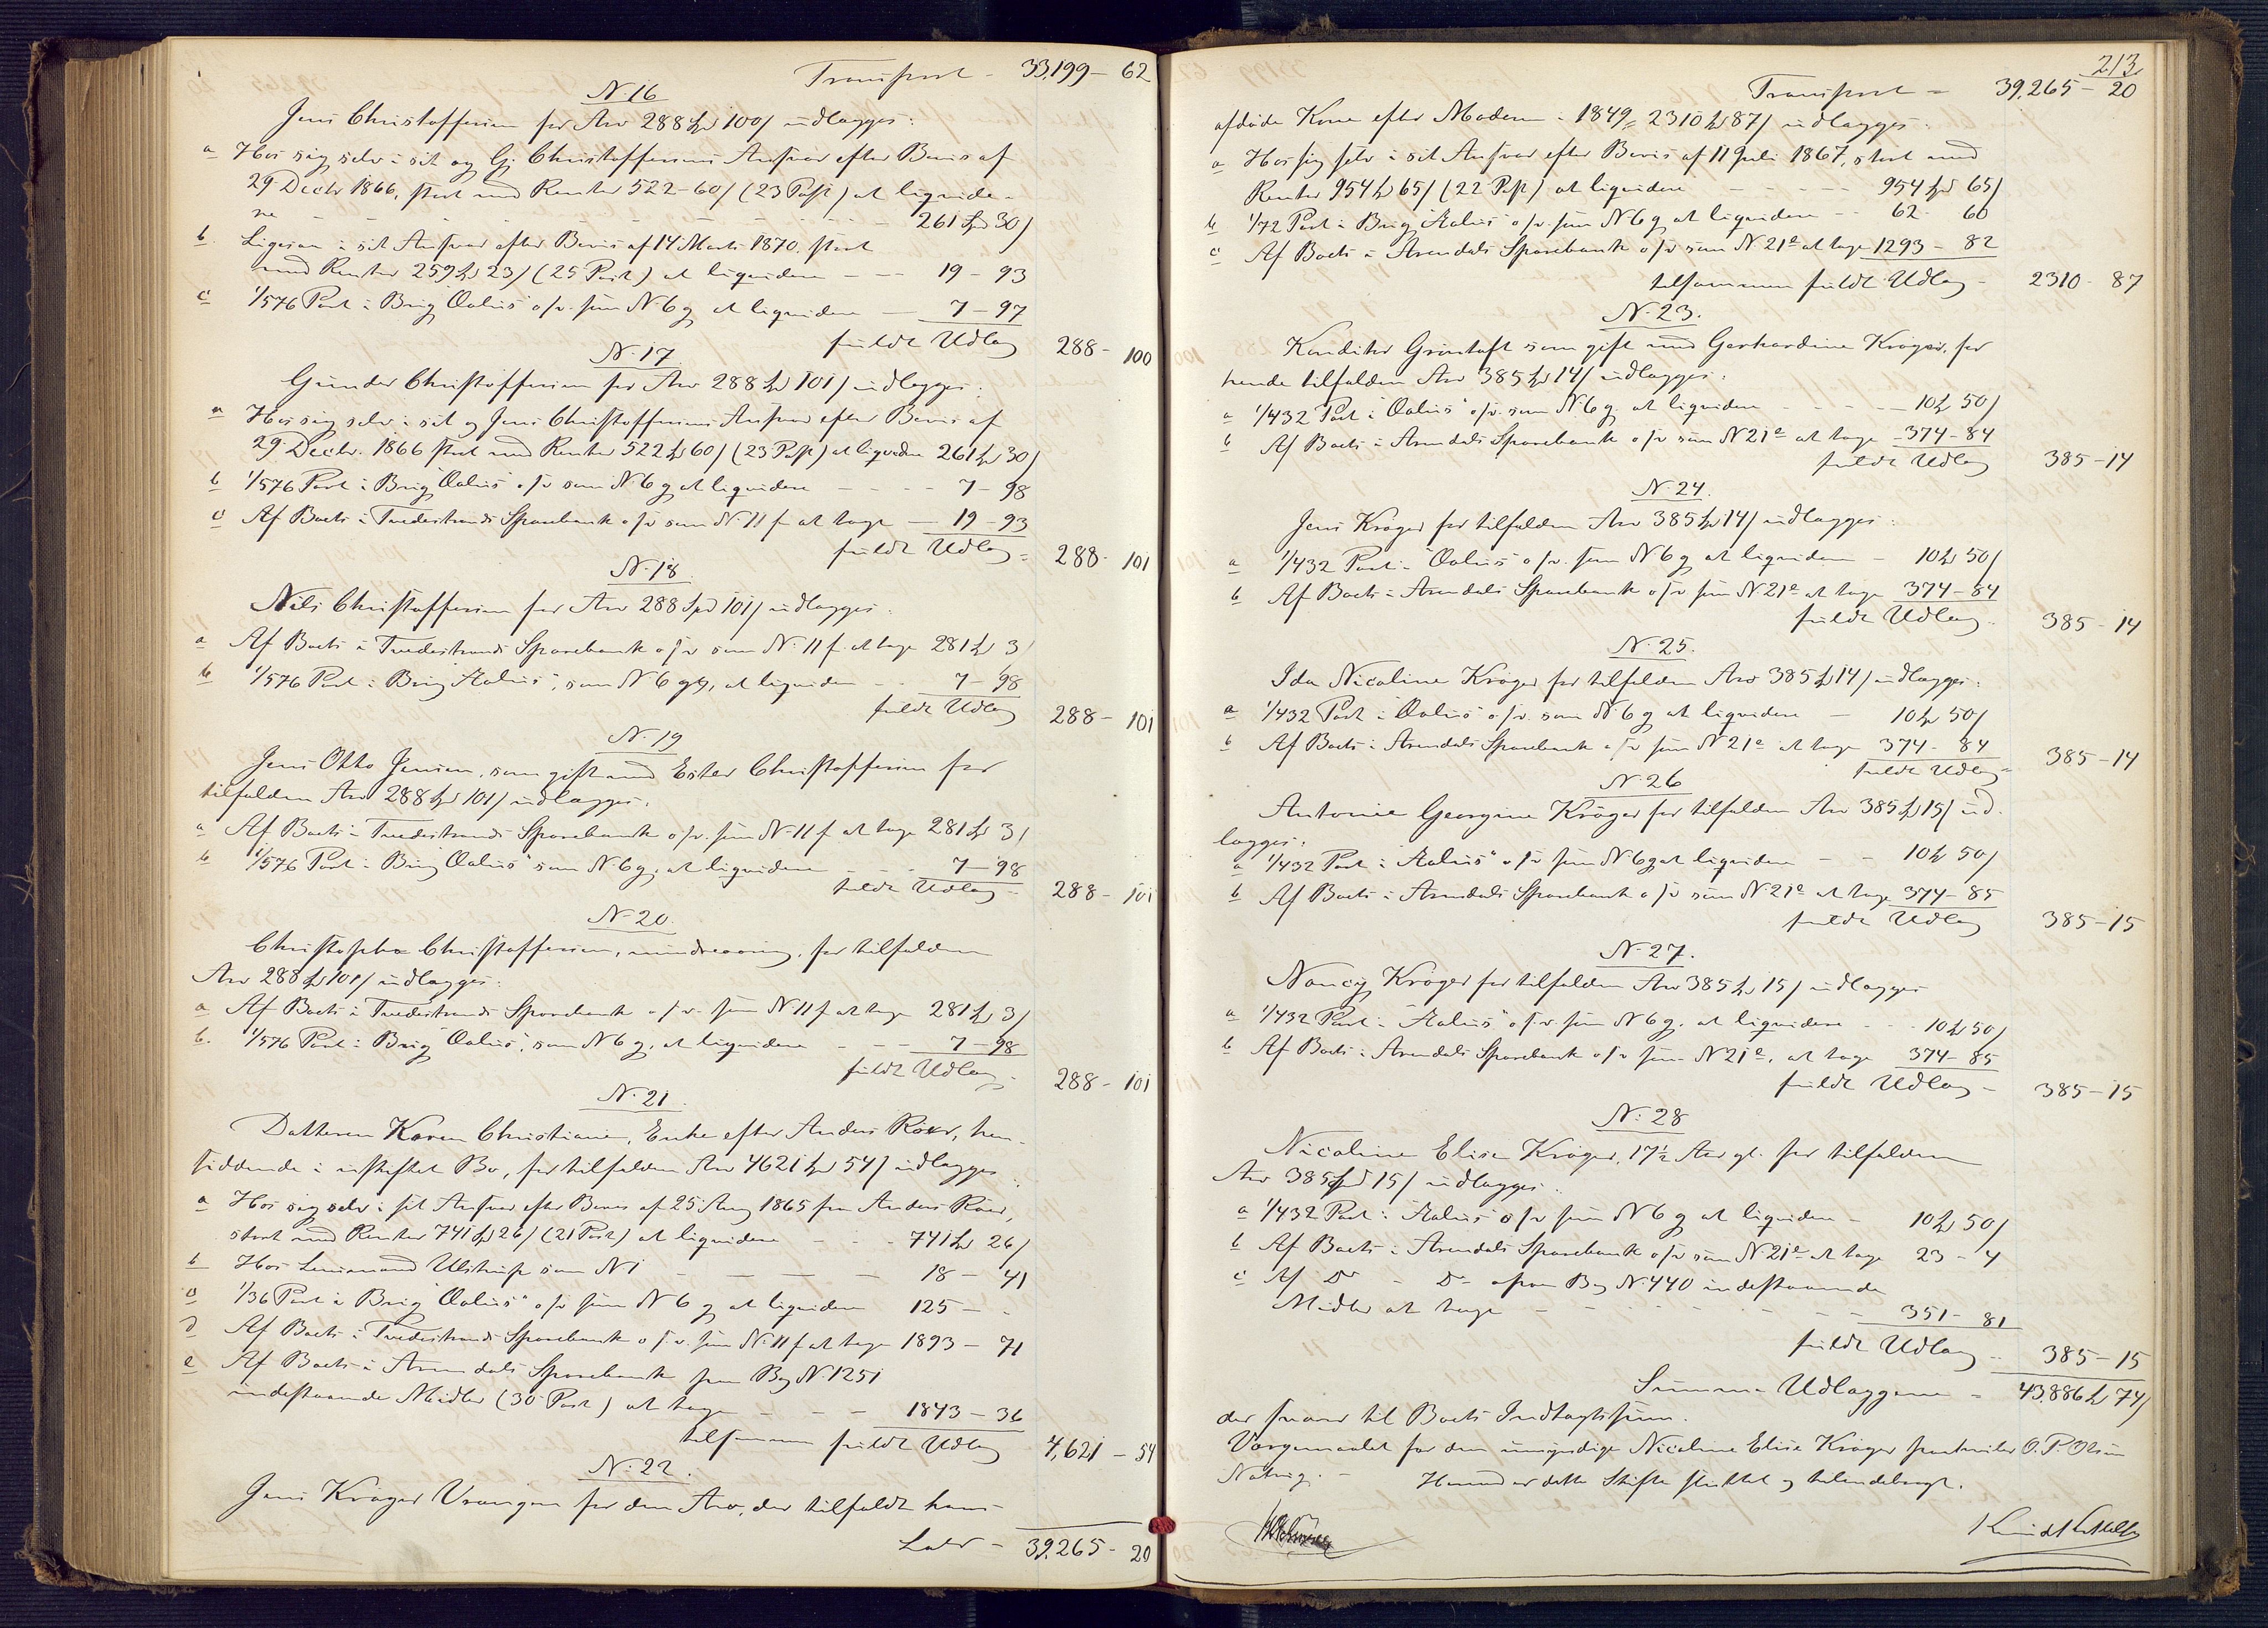 Transport - 33,199 - 62
N. 16
Jens Christoffersen for Arv 288 Spd 100 s udlægges:
a Hos sig selv i sit og G. Christoffersens Ansvar efter Bevis af
29 Decbr 1866, stort med Renter 522-60 s (23 Post) at liquide-
re - - - 261 Spd 30 s
b. Ligesaa i sit Ansvar efter Bevis af 14 Marts 1870 stort
med Renter 259 Spd 23 s (25 Post) at liquidere - - 19 - 93
c 1/576 Part i Brig Oalius o/v. som N 6 g at liquidere - 7 - 97
fuldt Udlæg 288 - 100
N. 17
Gunder Christoffersen for Arv 288 Spd 101 s udlægges:
a Hos sig selv i sit og Jens Christoffersens Ansvar efter Bevis af
29 Decbr. 1866 stort med Renter 522 Spd 60 s (23 Post) at liquidere 261 Spd 30 s
b 1/576 Part i Brig Oalius o/v som N 6 g at liquidere - - - 7 - 98
c Af Boets i Tvedestrands Sparebank o/v som N. 11 f at tage - 19 - 93
fuldt Udlæg - 288 - 101
N. 18
Nils Christoffersen for Arv 288 Spd 101 s udlægges:
a Af Boets i Tvedestrands Sparebank o/v som N. 11 f at tage 281 Spd 3 s
b 1/576 Part i Brig , som N 6 g, at liquidere - - 7 - 98
fuldt Udlæg 288 - 101
N. 19
Jens Otto Jensen, som gift med Ester Christoffersen for
tilfalden Arv 288 Spd 101 s udlægges:
a Af Boets i Tvedestrands Sparebank o/v. som N. 11 f at tage 281 Spd 3 s
b 1/576 Part i Brig Oalius" som N. 6 g, at liquidere - 7 - 98
fuldt Udlæg - 288 - 101
N. 20.
Christopher Christoffersen, mindreaarig, for tilfalden
Arv 288 Spd 101 s udlægges:
a Af Boets i Tvedestrands Sparebank o/v. som N 11 f at tage 281 Spd 3 s
b. 1/576 Part i Brig Oalius", som N 6 g, at liquidere - - 7 - 98
fuldt Udlæg - 288 - 101
N. 21.
Datteren Karen Christiane, Enke efter Anders Röer, hen-
siddende i uskiftet Bo, for tilfalden Arv 4621 Spd 54 s udlægges
a Hos sig selv i sit Ansvar efter Bevis af 25 Aug 1865 fra Anders Röer,
stort med Renter 741 Spd 26 s (21 Post) at liquidere - - - 741 Spd 26 s
b Hos Ulstrup som N 1 - - - - 18 - 41
c 1/36 Part i Brig Oalius" o/v som N 6 g at liquidere 125 - -
d Af Boets i Tvedestrands Sparebank o/v. som N. 11 f at tage 1893 - 71
e Af Boets i Arendals Sparebank paa Bog N. 1251
indestaaende Midler (30 Post) at tage - - - 1843 - 36
tilsammen fuldt Udlæg 4,621 - 54
N. 22.
Jens Kröger Vrangen for den Arv, der tilfaldt hans
Lats - 39,265 - 20
213.
Transport - 39,265 - 20
afdöde Kone efter Moderen i 1849 2310 Spd 87 s udlægges:
a Hos sig selv i sit Ansvar efter Bevis af 11 Juli 1867, stort med
Renter 954 Spd 65 s (22 Post) at liquidere - - - 954 Spd 65 s
b 1/72 Part i Brig o/v. som N 6 g at liquidere - - 62 60
c Af Boets i Arendals Sparebank o/v som N. 21 e at tage 1293 - 82
tilsammen fuldt Udlæg - 2310 - 87
N. 23.
Konditor Gröntoft som gift med Gerhardine Kröger, for
hende tilfalden Arv 385 Spd 14 s udlægges:
a 1/432 Part i Oalius" o/v. som N 6 g at liquidere - - - 10 Spd 50 s
b Af Boets i Arendals Sparebank o/v som N 21 e at tage - 374 - 84
fuldt Udlæg 385 - 14
N. 24.
Jens Kröger for tilfalden Arv 385 Spd 14 s udlægges:
a 1/432 Part i Oalius" o/v. som N. 6 g at liquidere - 10 Spd 50 s
b Af Boets i Arendals Sparebank o/v som N 21 e at tage 374 - 84
fuldt Udlæg - 385 - 14
N. 25.
Ida Nicoline Kröger for tilfalden Arv 385 Spd 14 s udlægges:
a 1/432 Part i Oalius" o/v. som N. 6 g at liquidere - 10 Spd 50 s
b Af Boets i Arendals Sparebank o/v som N 21 e at tage 374 - 84
fuldt Udlæg - 385 - 14
N. 26
Antonie Georgine Kröger for tilfalden Arv 385 Spd 15 s ud-
lægges:
a 1/432 Part i " o/v som N 6 g at liquidere - - 10 Spd 50 s
b Af Boets i Arendals Sparebank o/v som N. 21 e at tage 374 - 85
fuldt Udlæg 385 - 15
N. 27.
Nancy Kröger for tilfalden Arv 385 Spd 15 s udlægges
a 1/432 Part i " o/v. som N 6 g. at liquidere - - 10 Spd 50 s
b Af Boets i Arendals Sparebank o/v som N 21 e, at tage 374 - 85
fuldt Udlæg - 385 - 15
N. 28
Nicoline Elise Kröger, 17 1/2 Aar gl. for tilfalden
Arv 385 Spd 15 s udlægges:
a 1/432 Part i " o/v som N 6 g at liquidere - 10 Spd 50 s
b Af Boets i Arendals Sparebank o/v som N 21 e at tage 23 - 4
c Af Do - Do - paa Bog N. 440 indestaaende
Midler at tage - - - - 351 - 81
fuldt Udlæg - 385 - 15
Summa Udlæggene - 43,886 Spd 74 s
der svarer til Boets Indtægtssum.
Værgemaalet for den umyndige Nicoline Elise Kröger O. P. Olsen
Natvig. - Hermed er dette Skifte sluttet og tilendebragt.